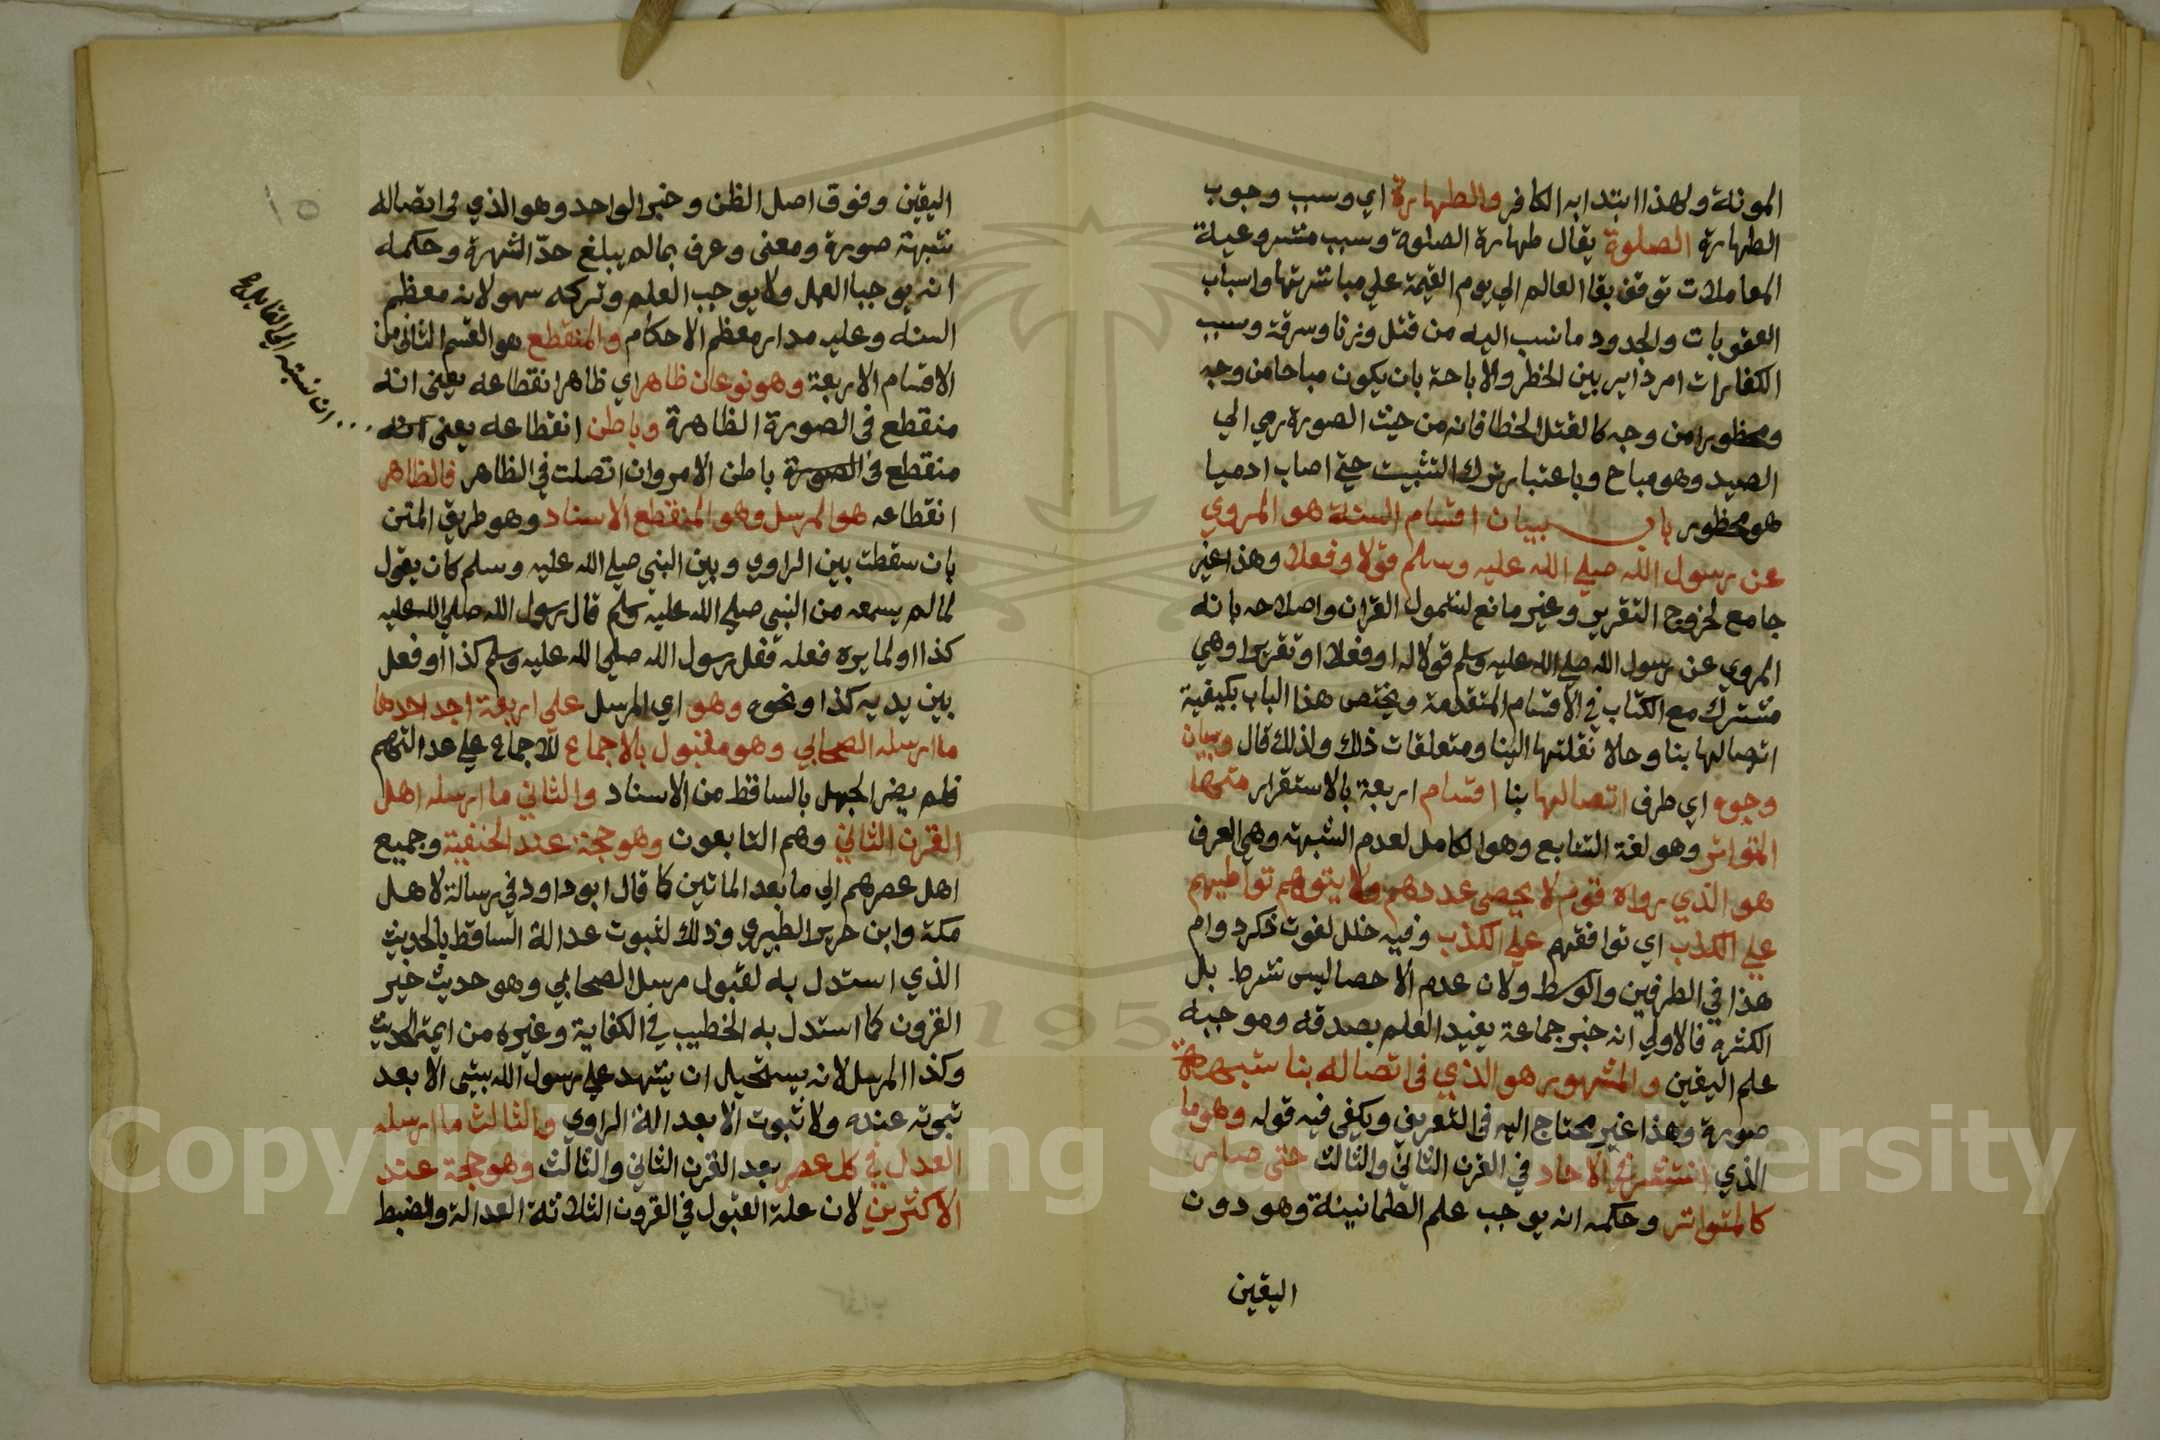 المونة ولهذا ابتدا به الكافر والطهارة اي وسبب وجوب
الطهارة الصلوة يقال طهارة الصلوة وسبب مشروعية
المعاملات توقف بقا العالم الي يوم القيمة علي مباشرتها واسباب
العقوبات والحدود ما نسب اليه من قتل وزنا وسرقة وسبب
الكفارات امر داير بين الحظر والاباحة بان يكون مباحا من وجه
ومحظورا من وجه كالقتل الخطا فانه من حيث الصورة رمي الي
الصيد وهو مباح وباعتبار ترك التثبيت حتي اصاب ادميا
هو محظور باب بيان اقسام السنة هو المروي
عن رسول الله صلي الله عليه وسلم قولا وفعلا وهذا غير
جامع لخروج التقرير وغير مانع لشمول القران واصلاحه بانه
المروي عن رسول الله صلي الله عليه وسلم قولا له او فعلا او تقريرا وهي
مشترك مع الكتاب في الاقسام المتقدمة ويختص هذا الباب بكيفية
اتصالها بنا وحال نقلتها الينا ومتعلقات ذلك ولذلك قال وبيان
وجوه اي طرق اتصالها بنا اقسام اربعة بالاستقرار منها
المتواتر وهو لغة التتابع وهو الكامل لعدم الشبهة وفي العرف
هو الذي رواه قوم لا يحصي عددهم ولا يتوهم تواطيهم
علي الكذب اي توافقهم علي الكذب وفيه خلل لفوت ذكر دوام
هذا في الطرفين والوسط ولان عدم الاحصا ليس شرط بل
الكثرة فالاولي انه خبر جماعة يفيد العلم بصدقه وموجبه
علم اليقين والمشهور هو الذي في اتصاله بنا شبهة
صورة وهذا غير محتاج اليه في التعريف ويكفي فيه قوله وهو ما
الذي انتشر في الاحاد في القرن الثاني والثالث حتي صار
كالمتواتر وحكمه انه يوجب علم الطمانينة وهو دون
اليقين
اليقين وفوق اصل الظن وخبر الواحد وهو الذي في اتصاله
شبهة صورة ومعنى وعرف بمالم يبلغ حدّ الشهرة وحكمه
انه يوجب العمل ولا يوجب العلم وتركه سهو لانه معظم
السنه وعليه مدار معظم الاحكام والمنقطع هو القسم الثاني من
الاقسام الاربعة وهو نوعان ظاهر اي ظاهر انقطاعه يعني انه
منقطع في الصورة الظاهرة وباطن انقطاعه يعني انه
منقطع في الصورة باطن الامر وان اتصلت في الظاهر فالظاهر
انقطاعه هو المرسل وهو المنقطع الاسناد وهو طريق المتن
بان سقطت بين الراوي وبين النبي صلي الله عليه وسلم كان يقول
لما لم يسمعه من النبي صلي الله عليه وسلم قال رسول الله صلي الله عليه
كذا او لما يره فعله فعل رسول الله صلي الله عليه وسلم كذا او فعل
بين يديه كذا ونحوه وهو اي المرسل علي اربعة احدها
ما ارسله الصحابي وهو مقبول بالاجماع للاجماع علي عدالتهم
فلم يضر الجهل بالساقط من الاسناد والثاني ما ارسله اهل
القرن الثاني وهم التابعون وهو حجة عند الحنفية وجميع
اهل عصرهم الي ما بعد الماتين كما قال ابو داود في رسالة لاهل
مكة وابن جرير الطبري وذلك لثبوت عدالة الساقط بالحديث
الذي استدل به لقبول مرسل الصحابي وهو حديث خير
القرون كما استدل به الخطيب في الكفاية وغيره من ايمة الحديث
وكذا المرسل لانه يستحيل ان يشهد علي رسول الله بشي الا بعد
ثبوته عنده ولا ثبوت الا بعدالة الراوي والثالث ما ارسله
العدل في كل عصر بعد القرن الثاني والثالث وهو حجة عند
الاكثرين لان علة القبول في القرون الثلاثة العدالة والضبط
١٥
Copyright © King Saud University
195